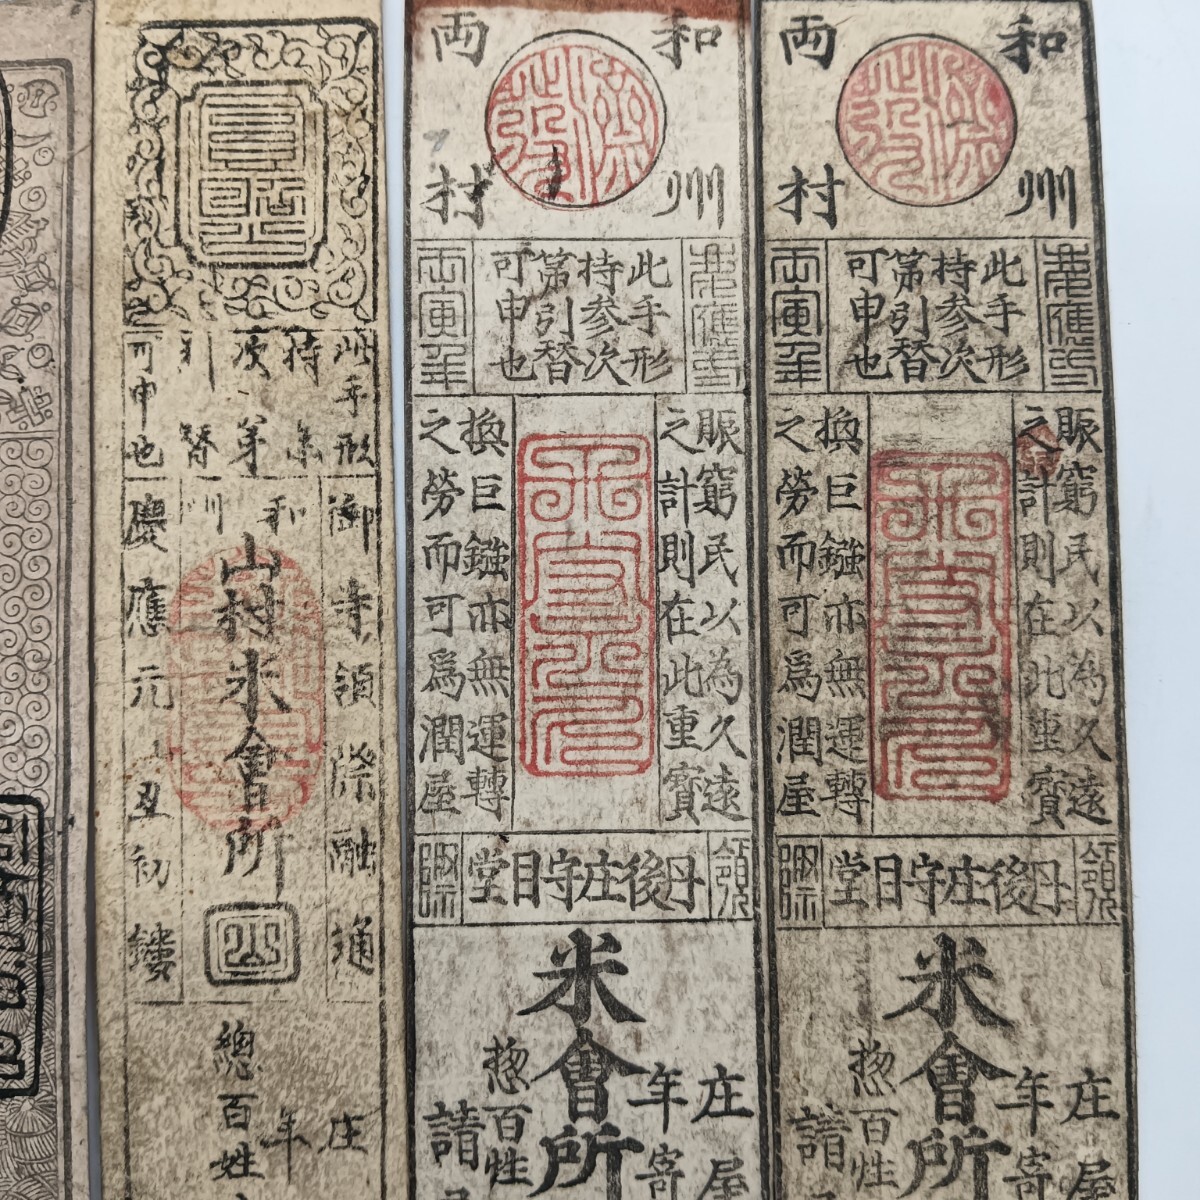 和州
両村
此手形
持参次
第引替
可申也
慶應二
丙寅年
賑窮民以為久遠
之計則在此重寳
換巨鏹亦無運轉
之勞而可為潤屋
領
丹後庄守目堂
米會所
庄屋
年寄
惣百姓
請
和州
両村
此手形
持参次
第引替
可申也
丙寅年
賑窮民以為久遠
之計則在此重寳
換巨鏹亦無運轉
之勞而可為潤屋
領
丹後庄守目堂
米會所
庄屋
年寄
惣百姓
請
此手形
持参
次第
引替
可申也
御寺領際融通
和州
山村米會所
慶應元丑初鏤
庄
年
總百姓